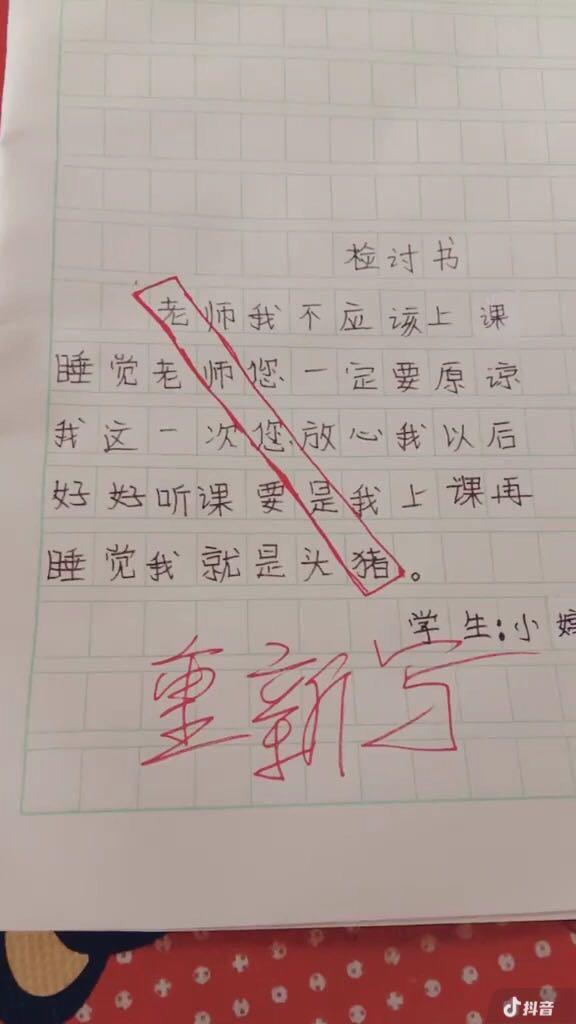 检讨书
老师我不应该上课
睡觉老师您一定要原谅
我这一次您放心我以后
好好听课要是我上课再
睡觉我就是头猪。
学生:小婷
重新写
抖音